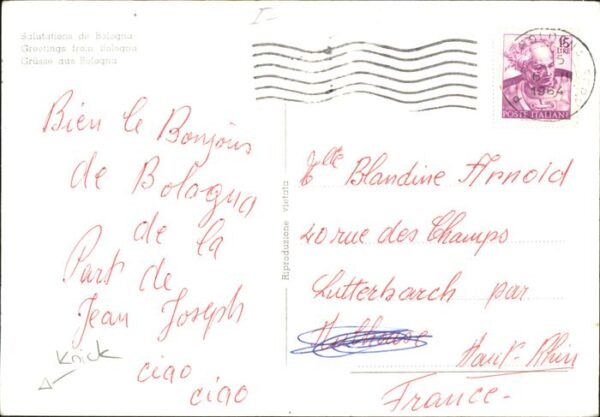 Salutations de Bologna
Greetings from Bologna
Grüsse aus Bologna
I-
15
LIRE
1964
POSTE ITALIANE
Bien le Bonjour
de Bologna
de la
Part de
Jean Joseph
ciao
ciao
Knick
Riproduzione vietata
Mlle Blandine Arnold
40 rue des Champs
Lutterbarch par
Mulhouse
Haut-Rhin
France-